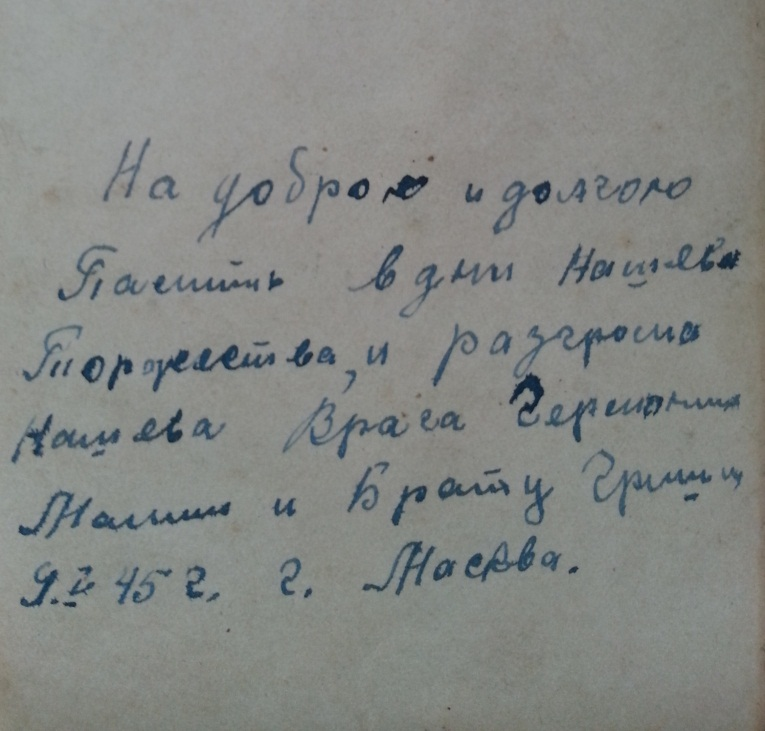 На доброю и долгою
Памить в дни Нашева
Торжества, и разгрома
Нашева Врага Германии
Мамии и Брату Грише
9.V 45 г. г. Масква.